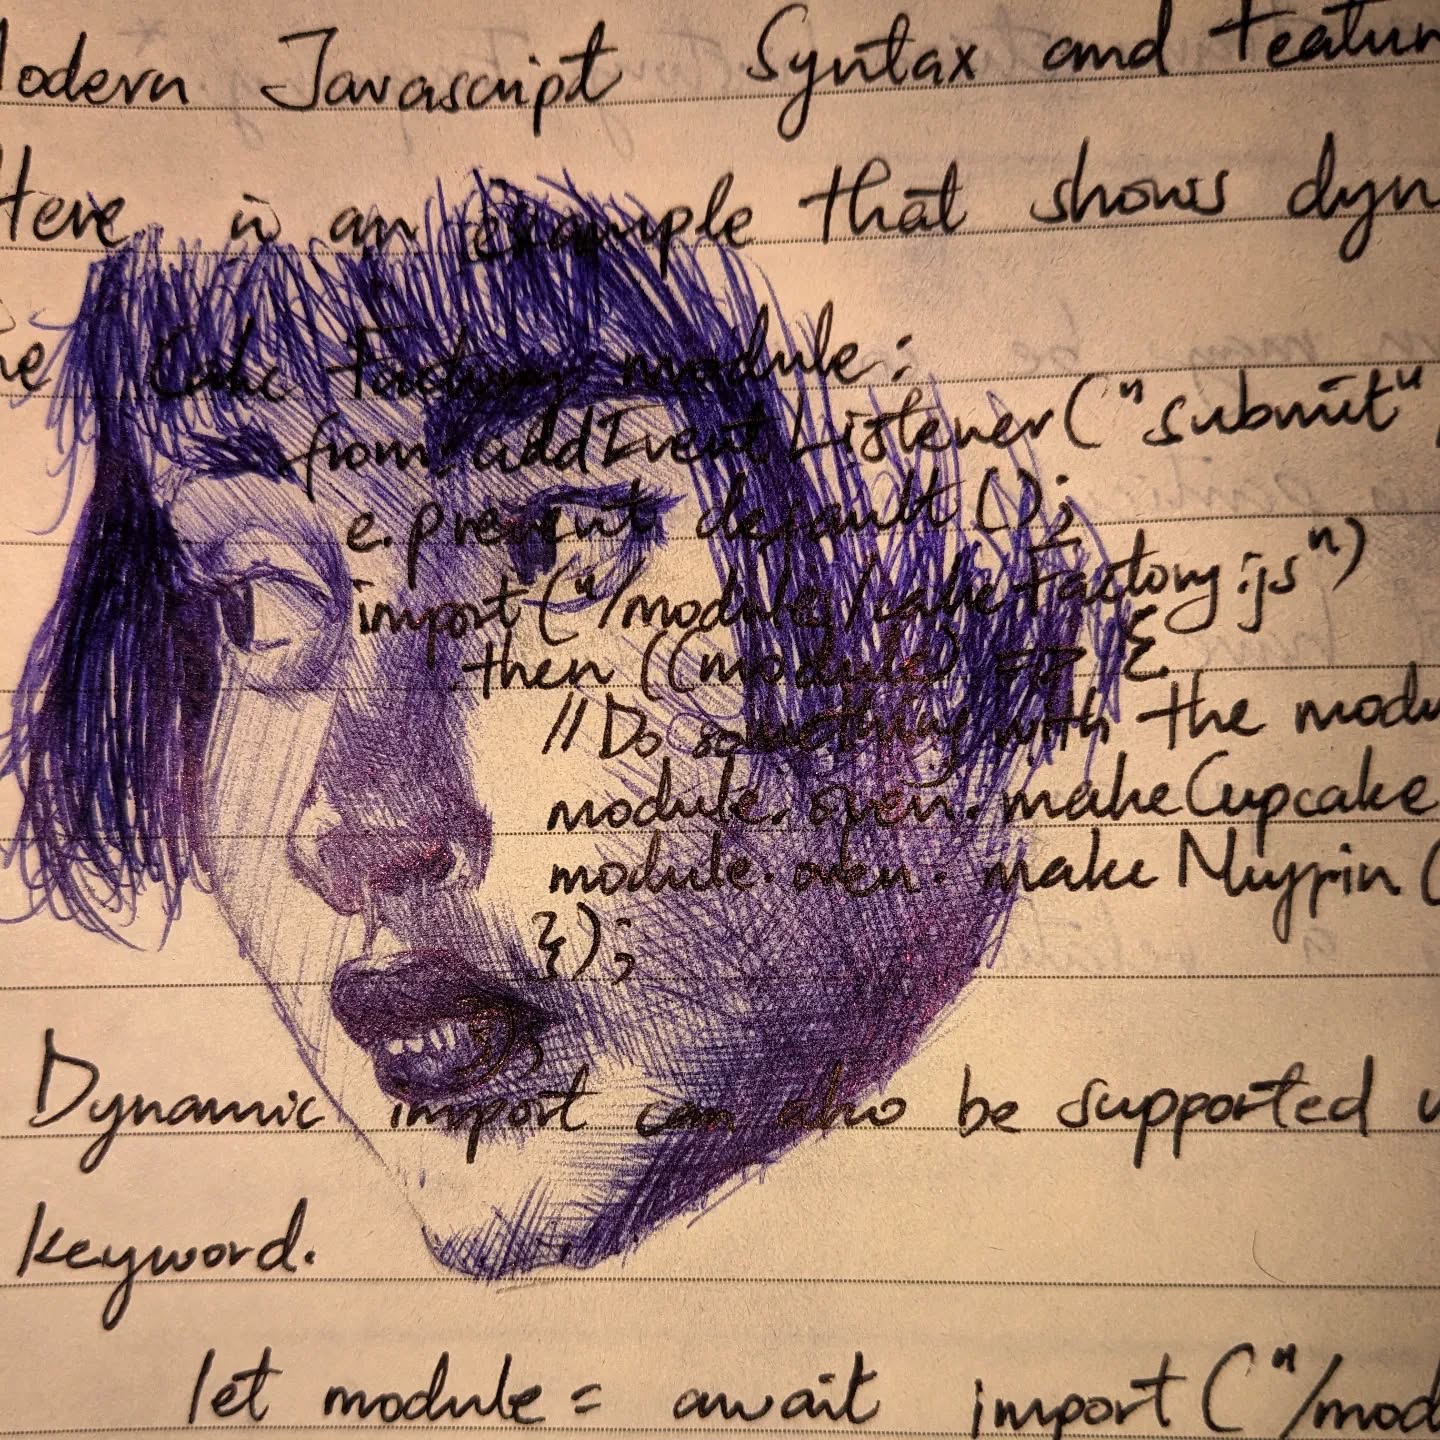 Modern Javascript Syntax and Featur
Here is an example that shows dyn
he Cake Factory module:
from.addEventListener("submit"
e.prevent default();
import("/module/cakeFactory.js")
then ((module) => {
//Do something with the modu
module.oven.makeCupcake
module.oven.make (
});
});
Dynamic import can also be supported
keyword.
let module = await import("/mod